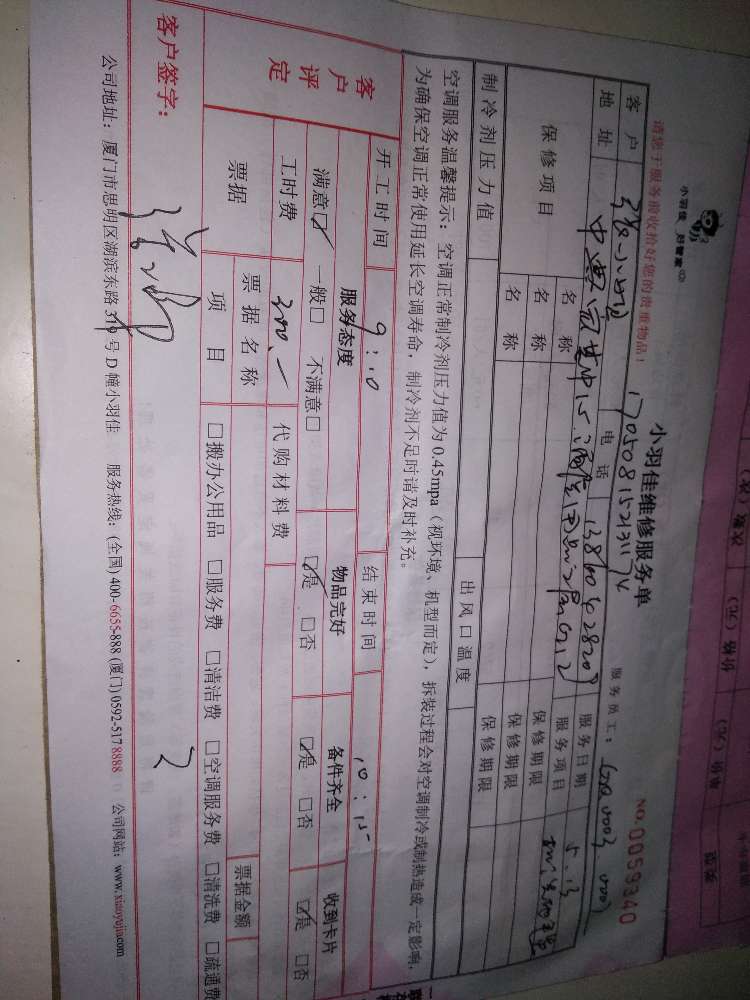 小羽佳 好管家
请您于服务前收拾好您的贵重物品！
小羽佳维修服务单
NO.0059340
17050815213117
服务员工：
客户
电话
服务日期 5.13
地址
服务项目
保修项目
名称
保修期限
名称
保修期限
名称
保修期限
制冷剂压力值
出风口温度
空调服务温馨提示：空调正常制冷剂压力值为0.45mpa（视环境、机型而定），拆装过程会对空调制冷或制热造成一定影响，
为确保空调正常使用延长空调寿命，制冷剂不足时请及时补充。
开工时间 9:10 结束时间 10:15
客户评定
服务态度 物品完好 备件齐全 收到卡片
满意☑ 一般□ 不满意□ ☑是 □否 ☑是 □否 ☑是 □否
工时费 300.- 代购材料费
票据 票据名称 票据金额
项目 □搬办公用品 □服务费 □清洁费 □空调服务费 □清洗费 □疏通费
客户签字：
公司地址：厦门市思明区湖滨东路319号D幢小羽佳 服务热线：(全国)400-6655-888 (厦门)0592-5178888 公司网站：www.xiaoyujia.com